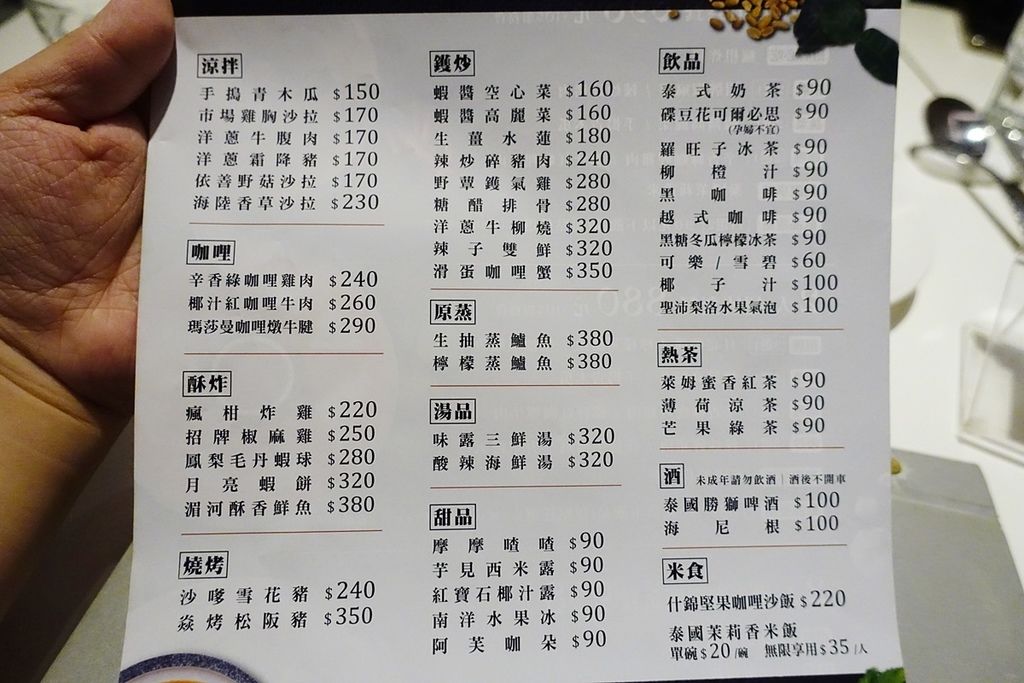 涼拌
手搗青木瓜 $150
市場雞胸沙拉 $170
洋蔥牛腹肉 $170
洋蔥霜降豬 $170
依善野菇沙拉 $170
海陸香草沙拉 $230
咖哩
辛香綠咖哩雞肉 $240
椰汁紅咖哩牛肉 $260
瑪莎曼咖哩燉牛腱 $290
酥炸
瘋柑炸雞 $220
招牌椒麻雞 $250
鳳梨毛丹蝦球 $280
月亮蝦餅 $320
湄河酥香鮮魚 $380
燒烤
沙嗲雪花豬 $240
焱烤松阪豬 $350
鑊炒
蝦醬空心菜 $160
蝦醬高麗菜 $160
生薑水蓮 $180
辣炒碎豬肉 $240
野蕈鑊氣雞 $280
糖醋排骨 $280
洋蔥牛柳燒 $320
辣子雙鮮 $320
滑蛋咖哩蟹 $350
原蒸
生抽蒸鱸魚 $380
檸檬蒸鱸魚 $380
湯品
味露三鮮湯 $320
酸辣海鮮湯 $320
甜品
摩摩喳喳 $90
芋見西米露 $90
紅寶石椰汁露 $90
南洋水果冰 $90
阿芙咖朵 $90
飲品
泰式奶茶 $90
碟豆花可爾必思 $90
(孕婦不宜)
羅旺子冰茶 $90
柳橙汁 $90
黑咖啡 $90
越式咖啡 $90
黑糖冬瓜檸檬冰茶 $90
可樂/雪碧 $60
椰子汁 $100
聖沛梨洛水果氣泡 $100
熱茶
萊姆蜜香紅茶 $90
薄荷涼茶 $90
芒果綠茶 $90
酒 未成年請勿飲酒|酒後不開車
泰國勝獅啤酒 $100
海尼根 $100
米食
什錦堅果咖哩沙飯 $220
泰國茉莉香米飯
單碗$20/碗 無限享用$35/人